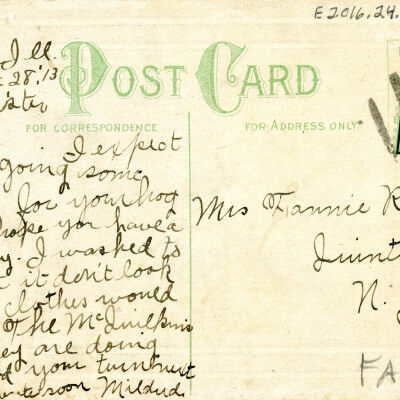 E 2016.24.
Ill.
28'13
POST CARD
ister
FOR CORRESPONDENCE
FOR ADDRESS ONLY
I expect
going some
for your hog
hope you have a
y. I washed to
it don't look
clothes would
The McQuilkins
ey are doing
d your turnout
soon Mildred
Mrs Fannie R
Quint
N. J
FA